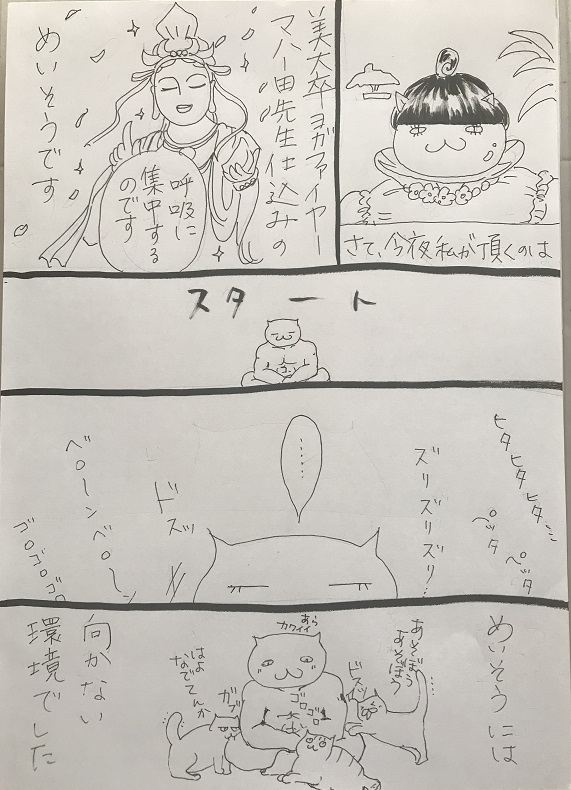 さて、今夜私が頂くのは
美大卒ヨガファイヤー
マハー田先生仕込みの
めいそうです
呼吸に
集中する
のです
スタート
……
ヒタヒタヒタ…
ペッタ
ペッタ
ズリズリズリ…
ドスッ
ベローンベローン
ゴロゴロゴロ
めいそうには
……
あそぼう
あそぼう
ドスッ
あら
カワイイ
ゴロ
ゴロ
ガブ
はよ
なでてんか
向かない
環境でした